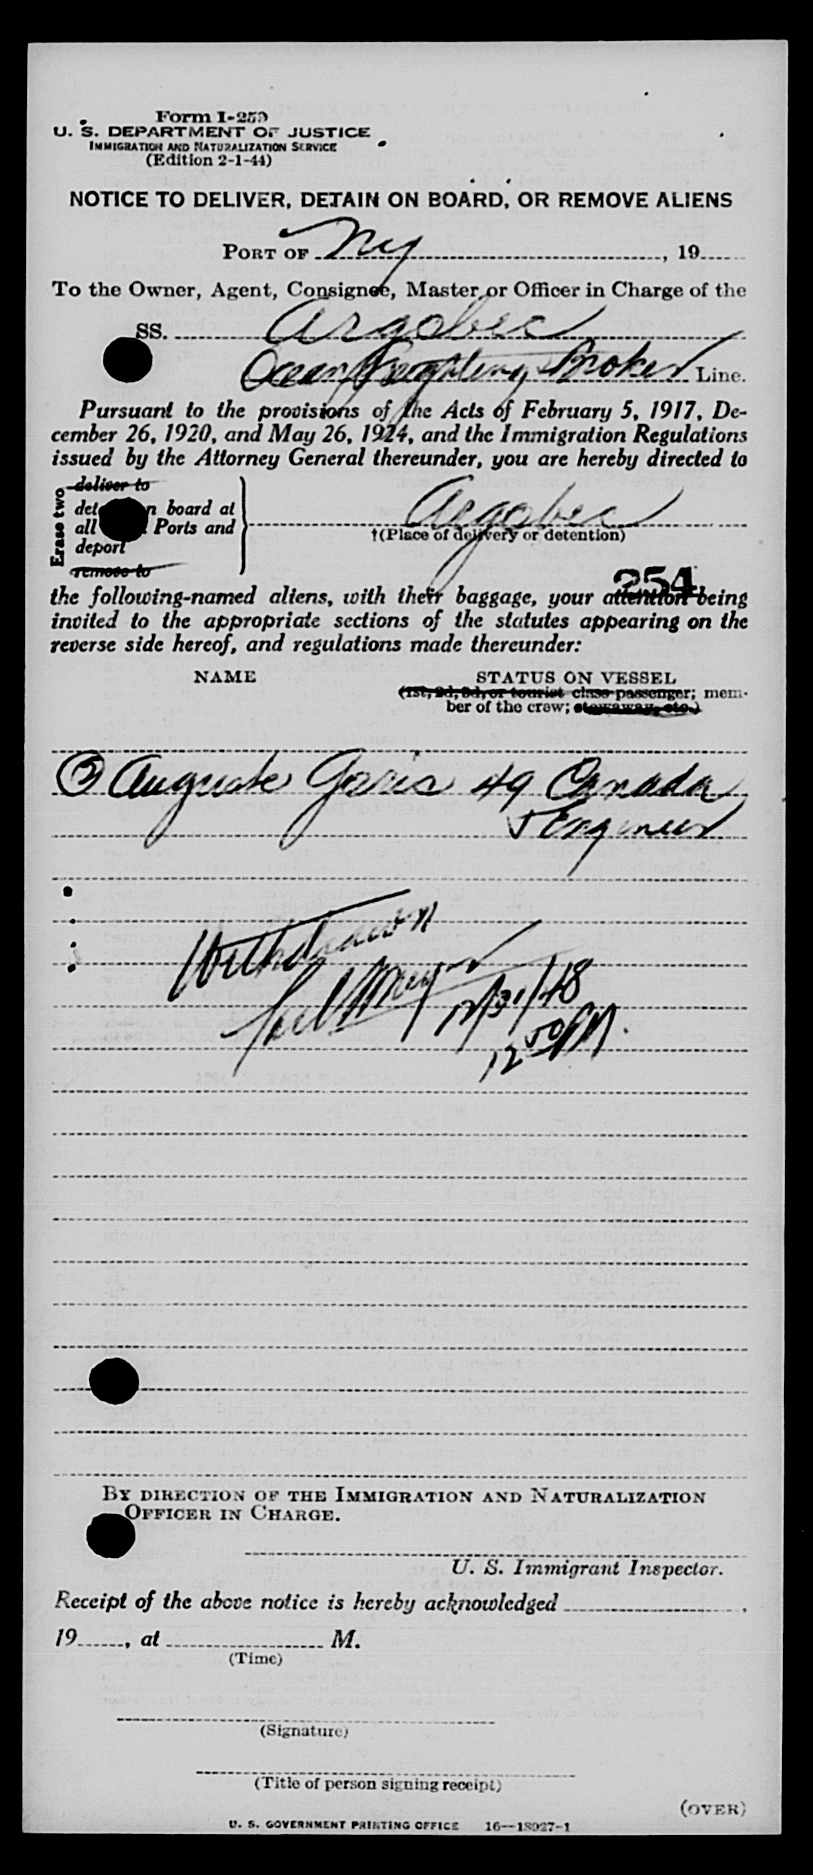 Form I-259
U. S. DEPARTMENT OF JUSTICE
IMMIGRATION AND NATURALIZATION SERVICE
(Edition 2-1-44)
NOTICE TO DELIVER, DETAIN ON BOARD, OR REMOVE ALIENS
PORT OF NY, 19
To the Owner, Agent, Consignee, Master, or Officer in Charge of the
SS. Argobec
Ocean Freighting Broker Line.
Pursuant to the provisions of the Acts of February 5, 1917, De-
cember 26, 1920, and May 26, 1924, and the Immigration Regulations
issued by the Attorney General thereunder, you are hereby directed to
Erase two
deliver to
det n board at
all Ports and
deport
remove to
Argobec
†(Place of delivery or detention)
254
the following-named aliens, with their baggage, your attention being
invited to the appropriate sections of the statutes appearing on the
reverse side hereof, and regulations made thereunder:
NAME STATUS ON VESSEL
(1st, 2d, 3d, or tourist class passenger; mem-
ber of the crew; stowaway, etc.)
Auguste Garis 49 Canada
Engineer
Withdrawn
12/31/48
12 50 PM.
BY DIRECTION OF THE IMMIGRATION AND NATURALIZATION
OFFICER IN CHARGE.
U. S. Immigrant Inspector.
Receipt of the above notice is hereby acknowledged ,
19 , at M.
(Time)
(Signature)
(Title of person signing receipt)
(OVER)
U. S. GOVERNMENT PRINTING OFFICE 16—18027-1